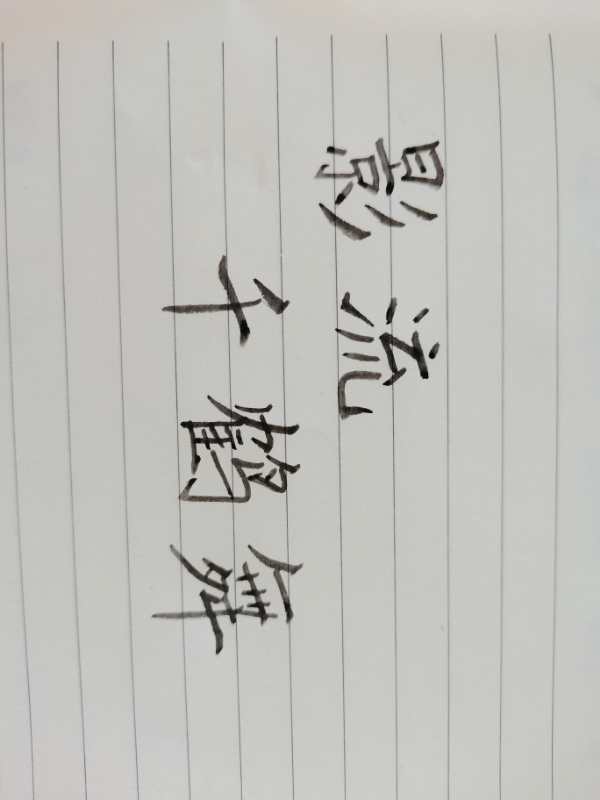 影流
千鶴舞